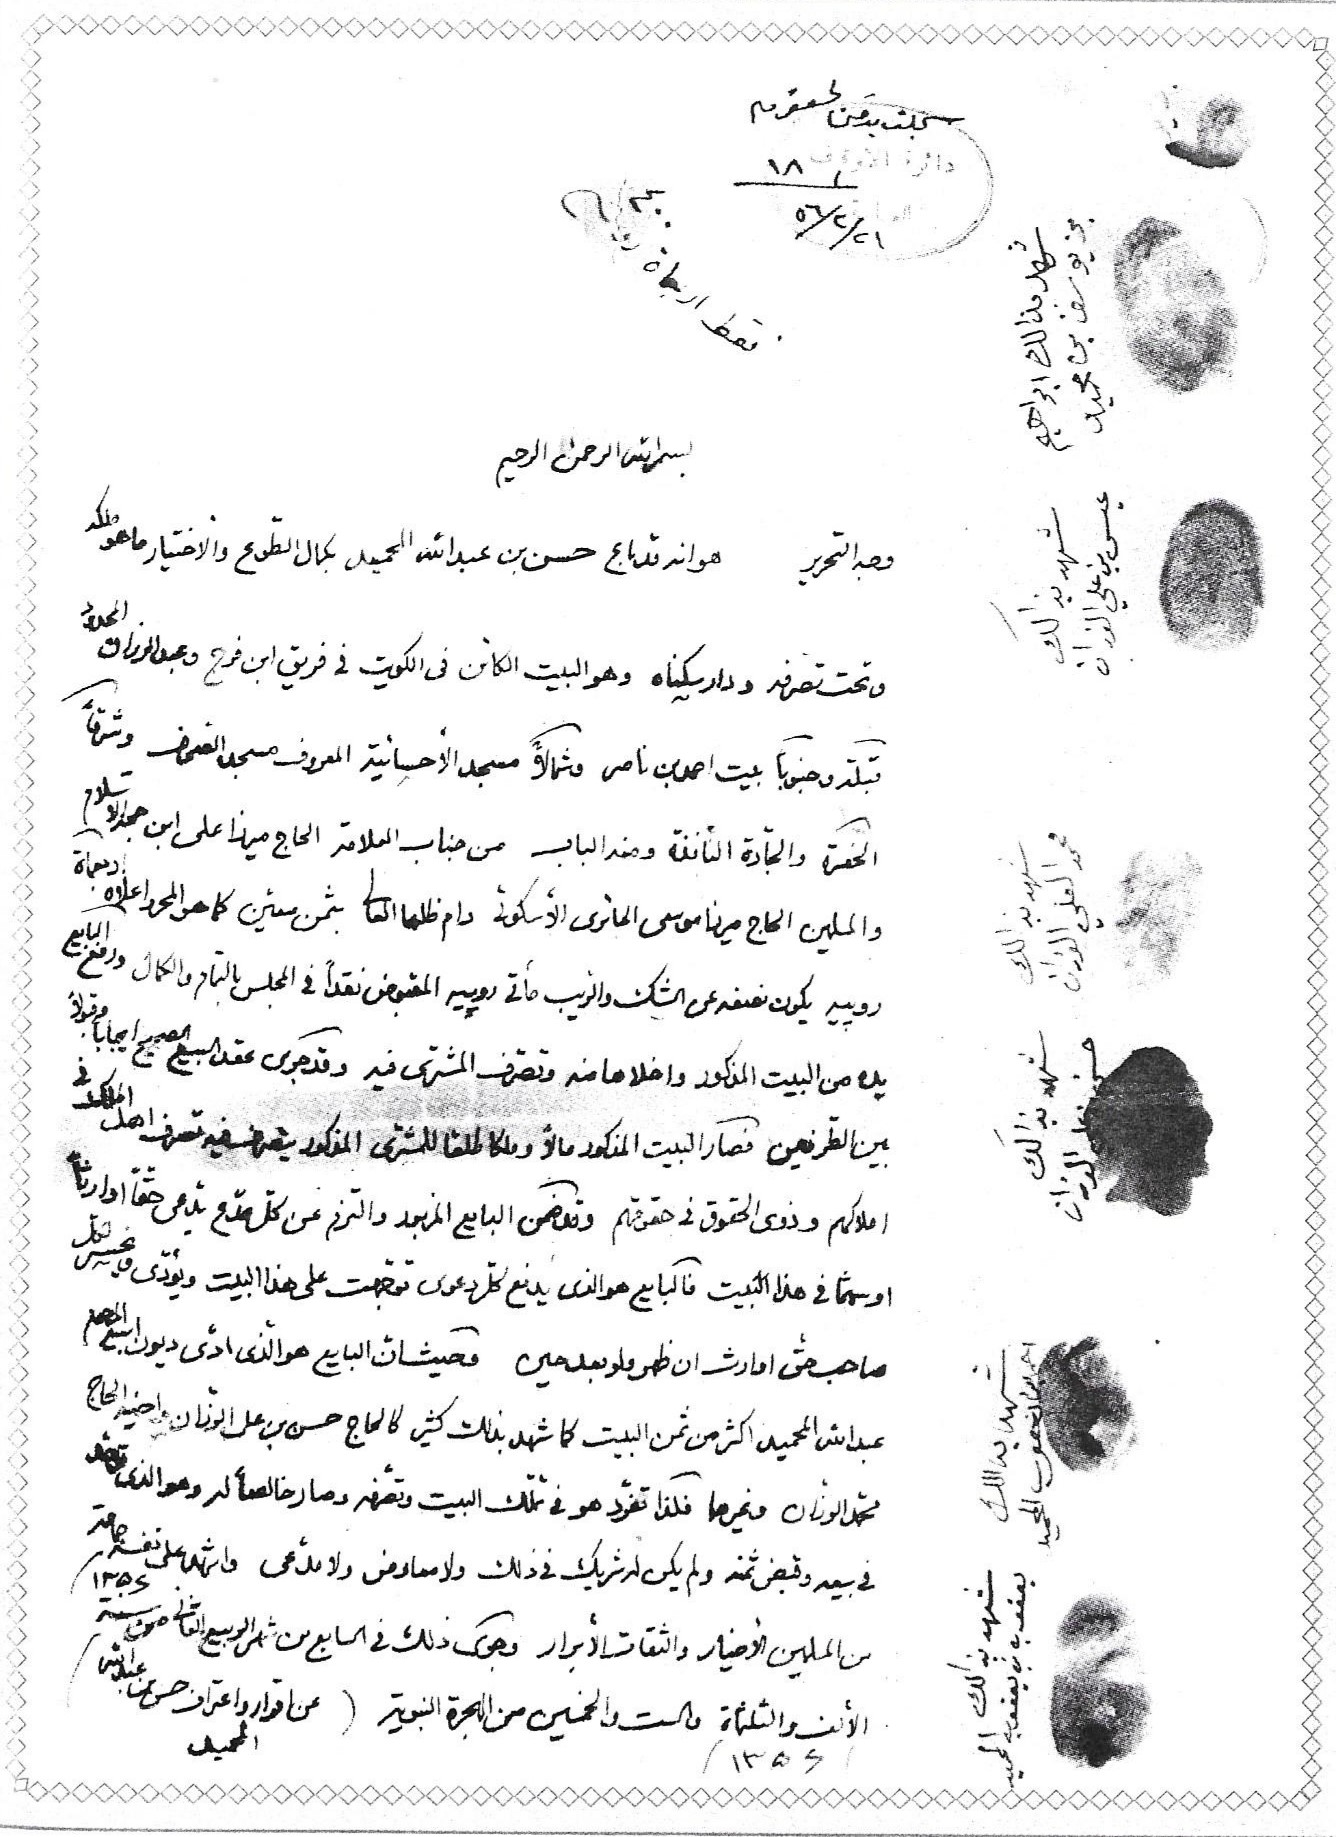 سجلت بدفتر
دائرة الأوقاف
١٨
٥٦/٢/٢١
فقط اربعماة
بسم الله الرحمن الرحيم
وجه التحرير هو انه قد باع حسن بن عبد الله المحميد بكمال الطوع والاختيار ما هو ملكه
وتحت تصرفه ودار سكناه وهو البيت الكائن في الكويت في فريق ابن فرج وعبد الرزاق المحدود
قبلة وجنوباً بيت احمد بن ناصر وشمالاً مسجد الأحسائية المعروف مسجد وشرقاً
الحفرة والجادة النافذة ومنه الباب من جناب العلامة الحاج ميرزا علي ابن حجة الاسلام
والمسلمين الحاج ميرزا موسى الحائري الأسكوئي دام ظلهما العالي بثمن معين كما هو المحرر اعلاه اربعماة
روبيه يكون نصفه عن الشك والريب مأتي روبيه المقبوض نقداً في المجلس بالتمام والكمال ورفع البايع
يده من البيت المذكور واخلاها منه وتصرف المشتري فيه وقد جرى عقد البيع الصحيح ايجاباً وقبولاً
بين الطرفين فصار البيت المذكور مالاً وملكا طلقا للمشتري المذكور يتصرف فيه تصرف اهل الملك في
املاكهم وذوي الحقوق في حقوقهم وقد ضمن البايع المزبور والتزم عن كل مدّع يدعي حقّاً او ارثاً
او سهما في هذا البيت فالبايع هو الذي يدفع كل دعوى توجهت على هذا البيت ويؤدي ويجيب لكل
صاحب حق او وارث ان ظهر ولو بعد حين وحيث ان البايع هو الذي ادّى ديون ابيه المرحوم
عبد الله المحميد اكثر من ثمن البيت كما شهد بذلك كثير كالحاج حسن بن علي الوزان واخيه الحاج
محمد الوزان وغيرهما فلذا تفرّد هو في تملّك البيت وتصرفه وصار خالصاً له وهو الذي
في بيعه وقبض ثمنه ولم يكن له شريك في ذلك ولا معارض ولا مدّعي واشهد على نفسه جماعة
من المسلمين الأخيار والثقات الأبرار وجرى ذلك في السابع من شهر الربيع الثاني من سنة ١٣٥٦
الألف والثلثماة والست والخمسين من الهجرة النبوية ( عن اقرار واعتراف حسن بن عبد الله
المحميد
١٣٥٦
شهد بذالك ابراهيم
بن يوسف بن محميد
شهد بذالك
عيسى بن علي الوزان
شهد بذالك
محمد العلي الوزان
شهد بذالك
حسن علي الوزان
شهد بذالك
اليعقوب المحميد
شهد بذالك
يعقوب بن يعقوب المحميد